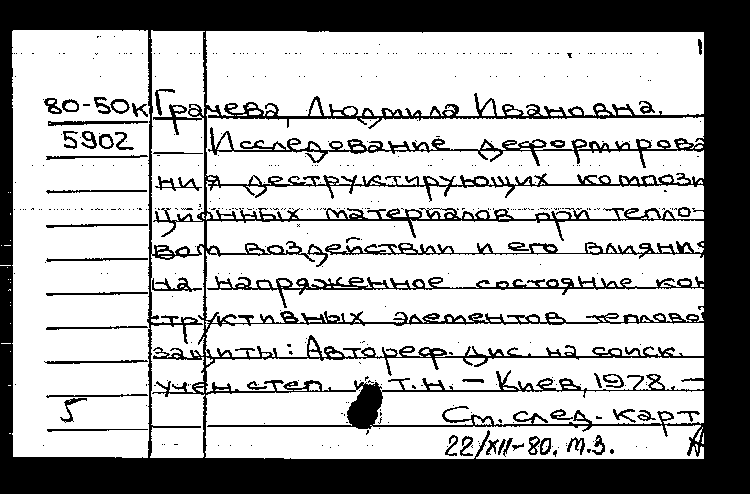 80-50к Грачева, Людмила Ивановна.
5902 Исследование деформирова
ния деструктирующих компози
ционных материалов при тепло-
вом воздействии и его влияния
на напряженное состояние кон
структивных элементов теплово
защиты: Автореф. дис. на соиск.
учен. степ. к т.н. — Киев, 1978. —
5 См. след. карт
22/XII-80. м.з. А